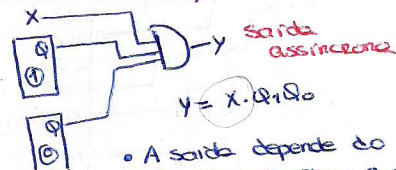 X
Q
Y
saída
assíncrona
1
Y = X·Q₁Q₀
Q
0
• A saída depende do